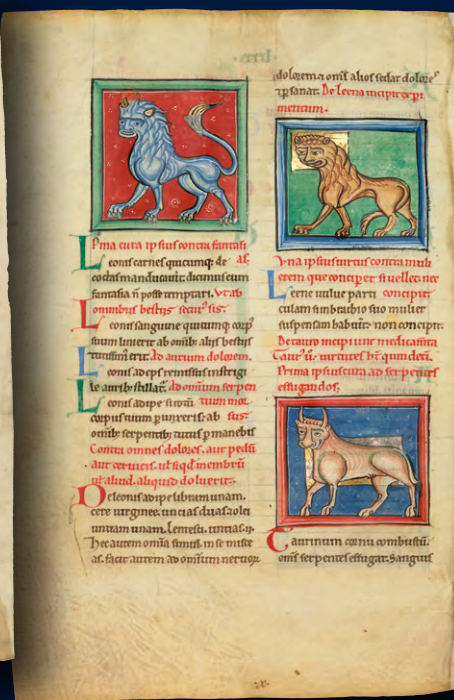 Prima cura ipsius contra fantasi
Leonis carnes quicumq; de as
coctas manducauit: dicimus eum
fantasia non posse temptari. Vt ab
omnibus bestiis secur' sis.
Leonis sanguine quicumq; corp'
suum linierit ab omib; aliis bestiis
tutissim' erit. Ad aurium dolorem.
Leonis adeps remissus instrigi
le aurib; stillat'. Ad omnium serpen
Leonis adipe si totu tium mor
corpus tuum punxeris: ab sus:
omib; serpentib; tutus pmanebis
Contra omnes dolores. aut pedu
aut ceruicis. ut siqd in membru
ut aliud. aliquid doluerit:
De leonis adipe libram unam.
cere uirginee. uncias duas. olei
unciam unam. uncias .ii.
Hec autem omia simul in se misce
as. facit autem ad omium neruoz
dolorem & oms alios sedat dolores
& psanat. De leena incipit expi
mentum.
Vna ipsius uirtus contra muli
erem que concipet si uellet: nec
Leene uulue parti concipit
culam si in brachio suo mulier
suspensam habuit: non concipit.
De tauro incipiunt medicamta
Tauri u. uirtutes he quindeci.
Prima ipsius cura ad serpentes
effugandos;
Taurinum cornu combustu.
oms serpentes effugat. Sanguis